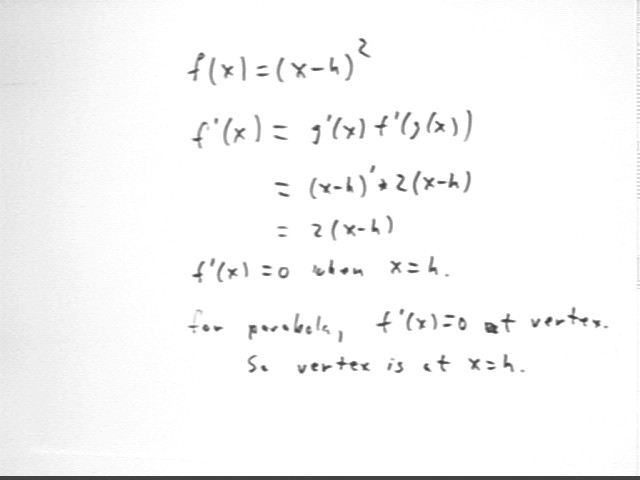 f(x)=(x-h)²
f'(x) = g'(x) f'(g(x))
= (x-h)' * 2(x-h)
= 2(x-h)
f'(x)=0 when x=h.
for parabola, f'(x)=0 at vertex.
So vertex is at x=h.